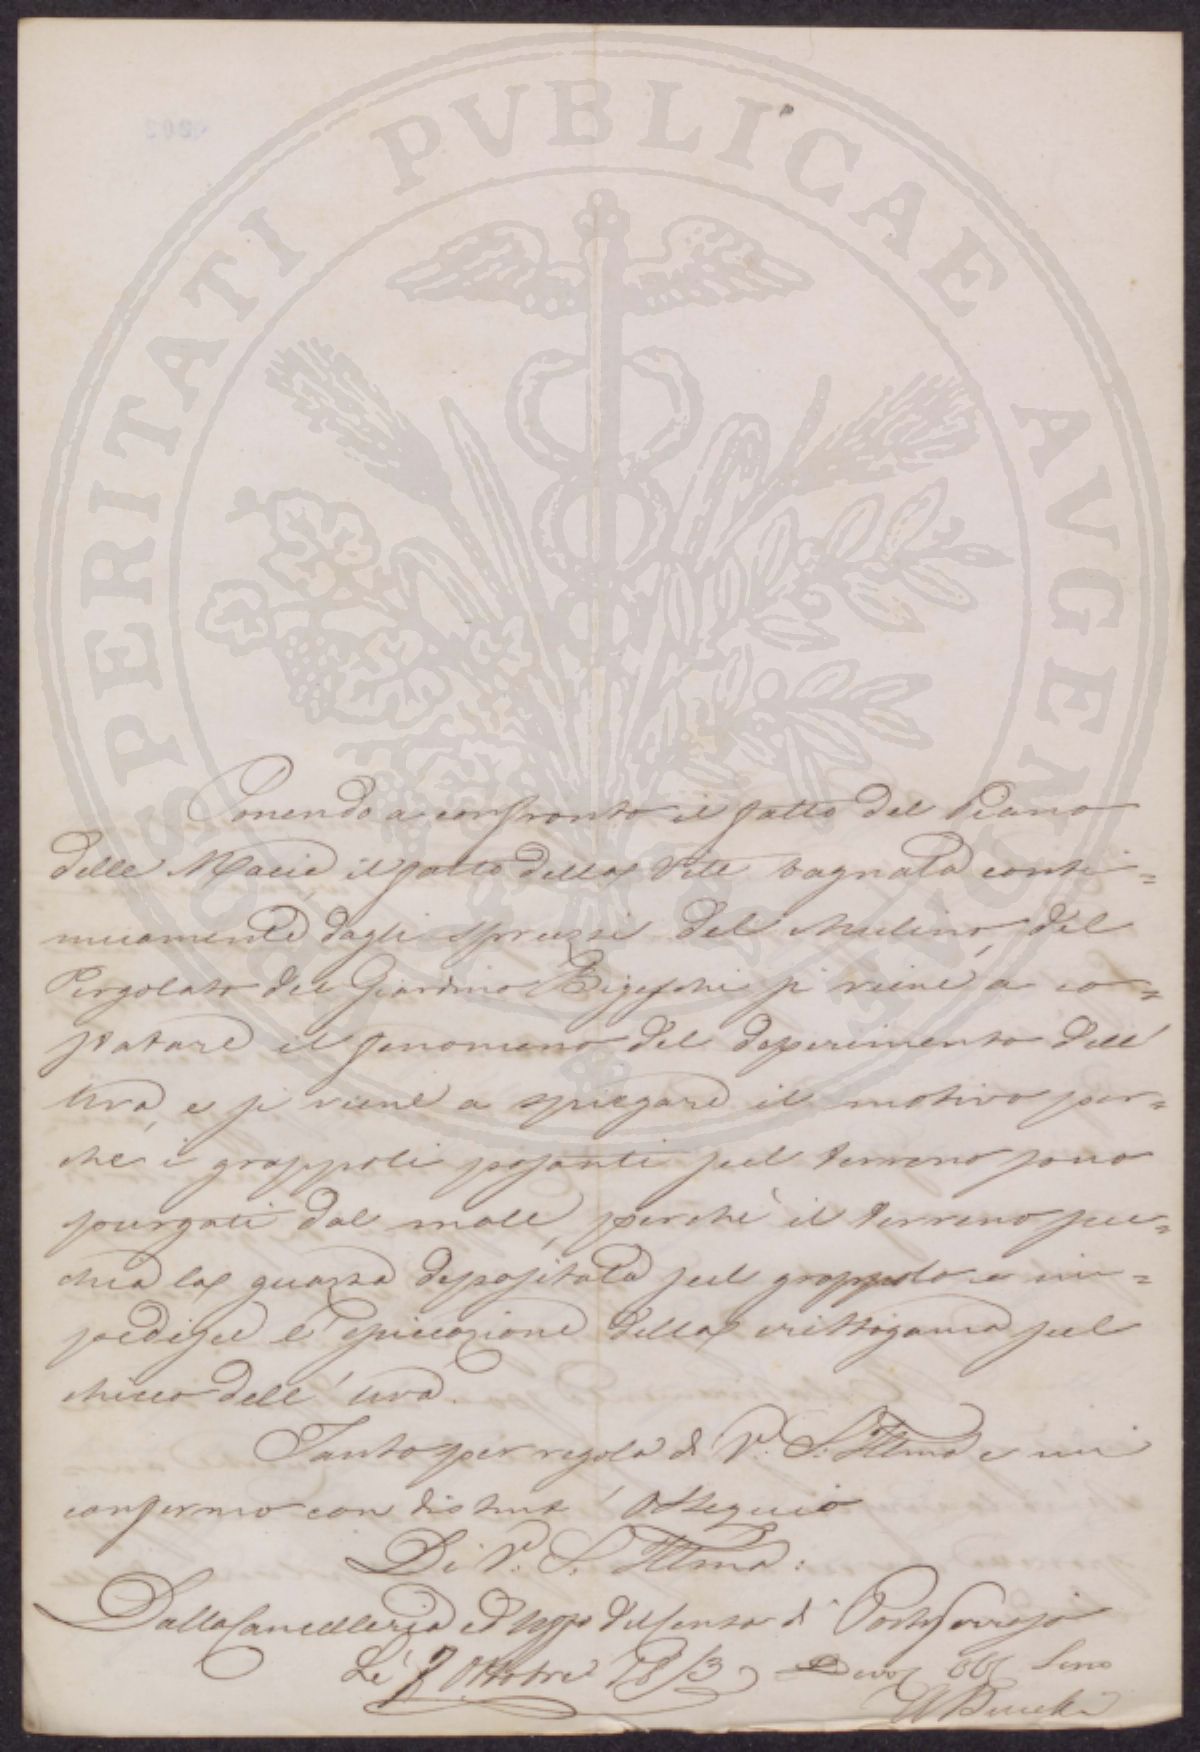 PROSPERITATI PVBLICAE AVGENDAE
Ponendo a confronto il fatto del Piano
delle Macie, il fatto della Vite bagnata conti=
nuamente dagli spruzzi del Mulino, del
Pergolato del Giardino si viene a co=
statare il fenomeno del deperimento dell'
Uva, e si viene a spiegare il motivo per=
che i grappoli posanti sul terreno sono
purgati dal male, perchè il terreno suc=
chia la guazza depositata sul grappolo e im=
pedisce l' della crittogama sul
chicco dell' uva.
Tanto per regola di V. S. Illma e mi
confermo con distint' Ossequio
Di V. S. Illma:
Dalla Cancelleria ed Uffo del Censo di Portoferrajo
Li 7 Ottobre 1853 Devo: obb: Servo